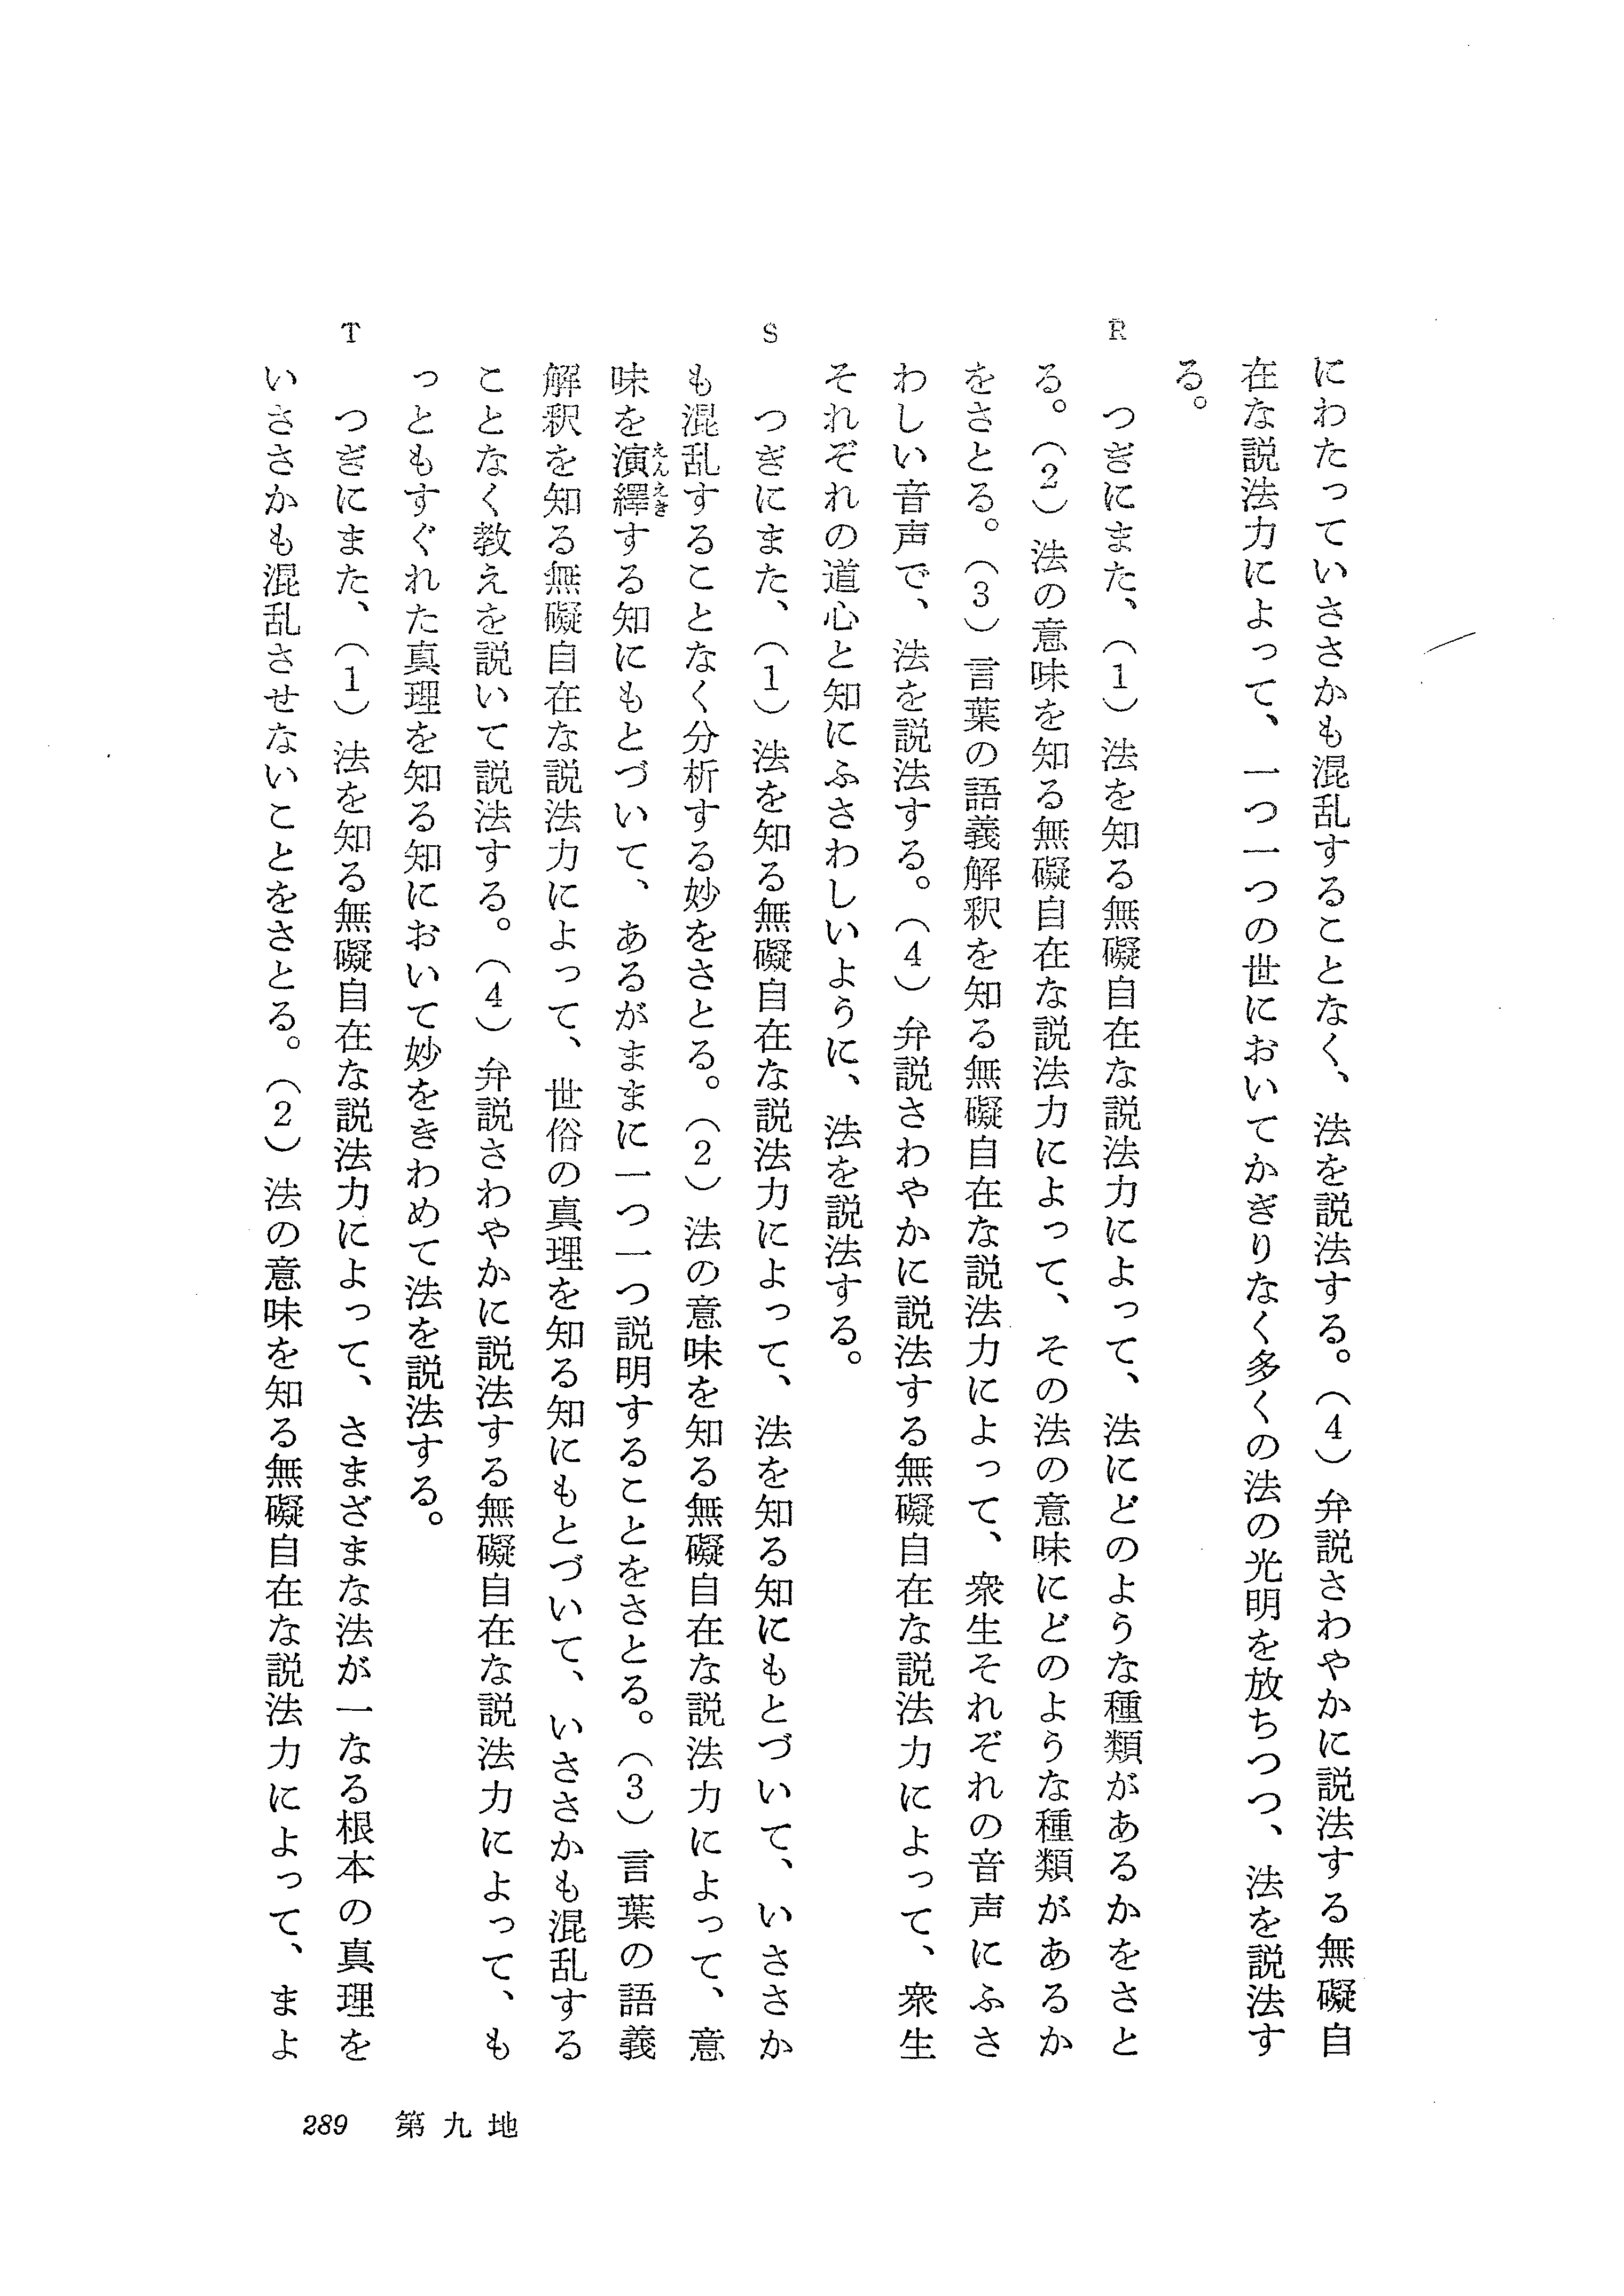 にわたっていささかも混乱することなく、法を説法する。（4）弁説さわやかに説法する無礙自
在な説法力によって、一つ一つの世においてかぎりなく多くの法の光明を放ちつつ、法を説法す
る。
R
つぎにまた、（1）法を知る無礙自在な説法力によって、法にどのような種類があるかをさと
る。（2）法の意味を知る無礙自在な説法力によって、その法の意味にどのような種類があるか
をさとる。（3）言葉の語義解釈を知る無礙自在な説法力によって、衆生それぞれの音声にふさ
わしい音声で、法を説法する。（4）弁説さわやかに説法する無礙自在な説法力によって、衆生
それぞれの道心と知にふさわしいように、法を説法する。
S
つぎにまた、（1）法を知る無礙自在な説法力によって、法を知る知にもとづいて、いささか
も混乱することなく分析する妙をさとる。（2）法の意味を知る無礙自在な説法力によって、意
味を演繹する知にもとづいて、あるがままに一つ一つ説明することをさとる。（3）言葉の語義
えんえき
解釈を知る無礙自在な説法力によって、世俗の真理を知る知にもとづいて、いささかも混乱する
ことなく教えを説いて説法する。（4）弁説さわやかに説法する無礙自在な説法力によって、も
っともすぐれた真理を知る知において妙をきわめて法を説法する。
T
つぎにまた、（1）法を知る無礙自在な説法力によって、さまざまな法が一なる根本の真理を
いささかも混乱させないことをさとる。（2）法の意味を知る無礙自在な説法力によって、まよ
289 第九地